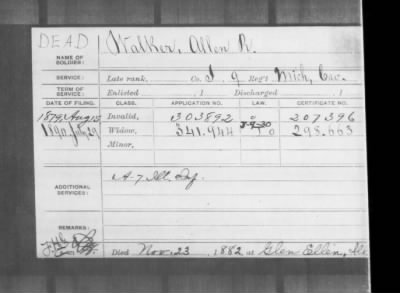 DEAD
NAME OF SOLDIER: Walker, Allen R.
SERVICE: Late rank, Co. I, 9 Reg't Mich, Cav.
TERM OF SERVICE: Enlisted , 1 Discharged , 1
DATE OF FILING. CLASS. APPLICATION NO. LAW. CERTIFICATE NO.
1879, Aug 15 Invalid, 303892 207396
1890, July 29 Widow, 341.944 298.663
Minor,
ADDITIONAL SERVICES: A-7 Ill. Inf.
REMARKS:
Died Nov. 23, 1882 at Glen Ellen, Ills